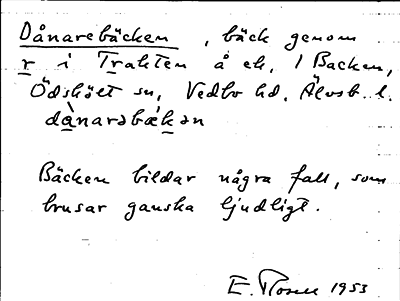 Dånarebäcken, bäck genom
r i Trakten å ek. 1 Backen,
Ödskölt sn, Vedbo hd, Älvsb. l.
dånarəbækən
Bäcken bildar några fall, som
brusar ganska ljudligt.
E. Rosell 1953